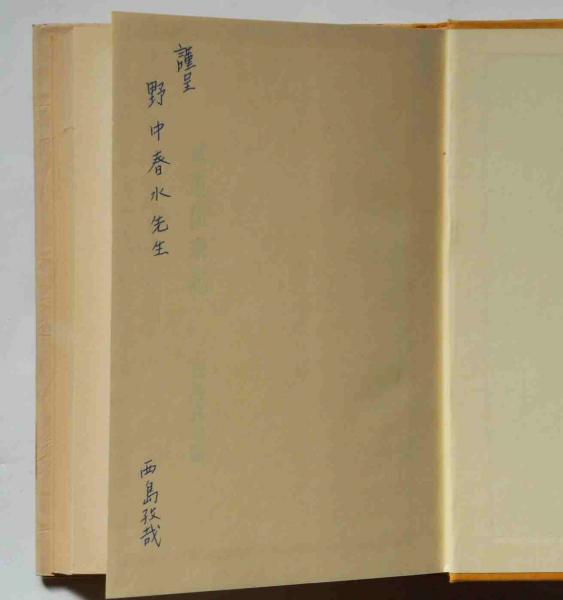 謹呈
野中春水先生
西島孜哉